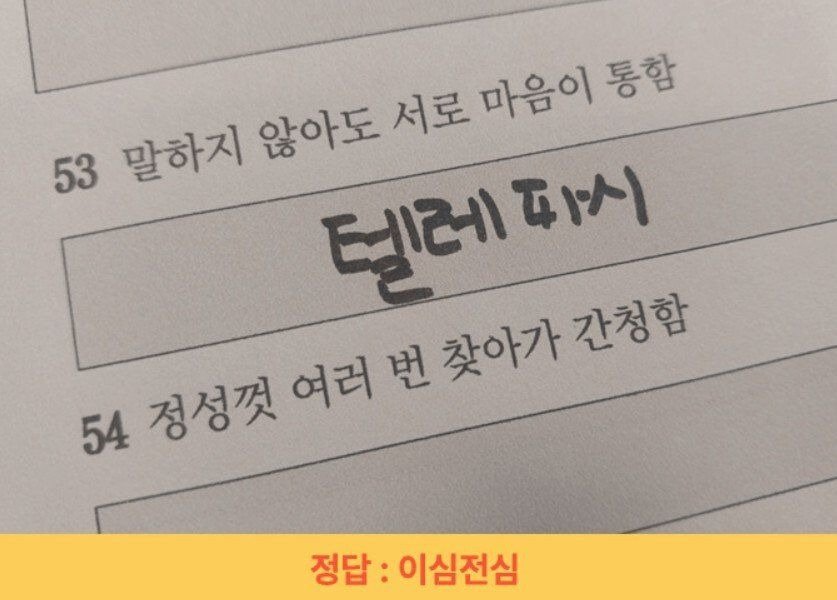 53 말하지 않아도 서로 마음이 통함
텔레파시
54 정성껏 여러 번 찾아가 간청함
정답 : 이심전심